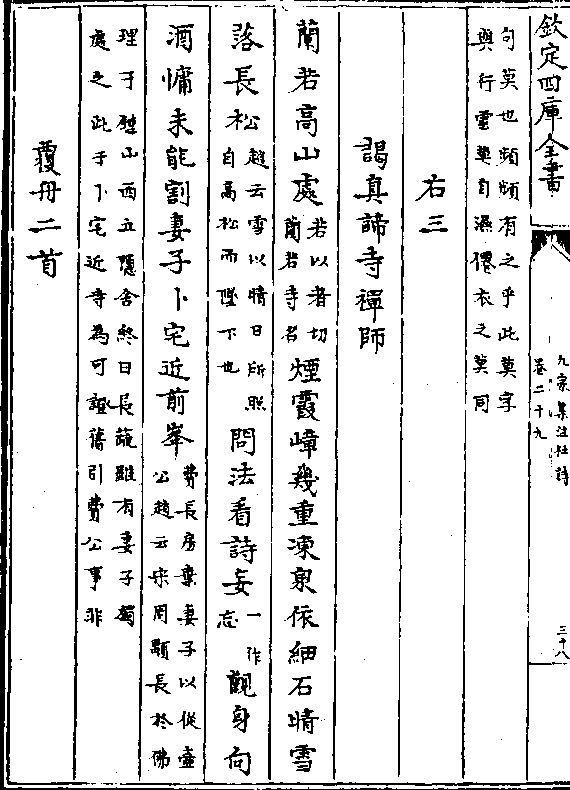 欽定四庫全書
九家集注杜詩
卷二十九
三十八
句莫也頻頻有之乎此莫字
與行雲莫自濕僊衣之莫同
右三
謁真諦寺禪師
蘭若高山處若以者切蘭若寺名煙霞嶂幾重凍泉依細石晴雪
落長松趙云雪以晴日所照公自高松而墜下也問法看詩妄一作忘觀身向
酒慵未能割妻子卜宅近前峯費長房棄妻子以從壺公趙云宋周顒長於佛
理于鍾山西立隱舍終日長蔬雖有妻子獨
處之此于卜宅近寺為可證舊引費公事非
覆舟二首